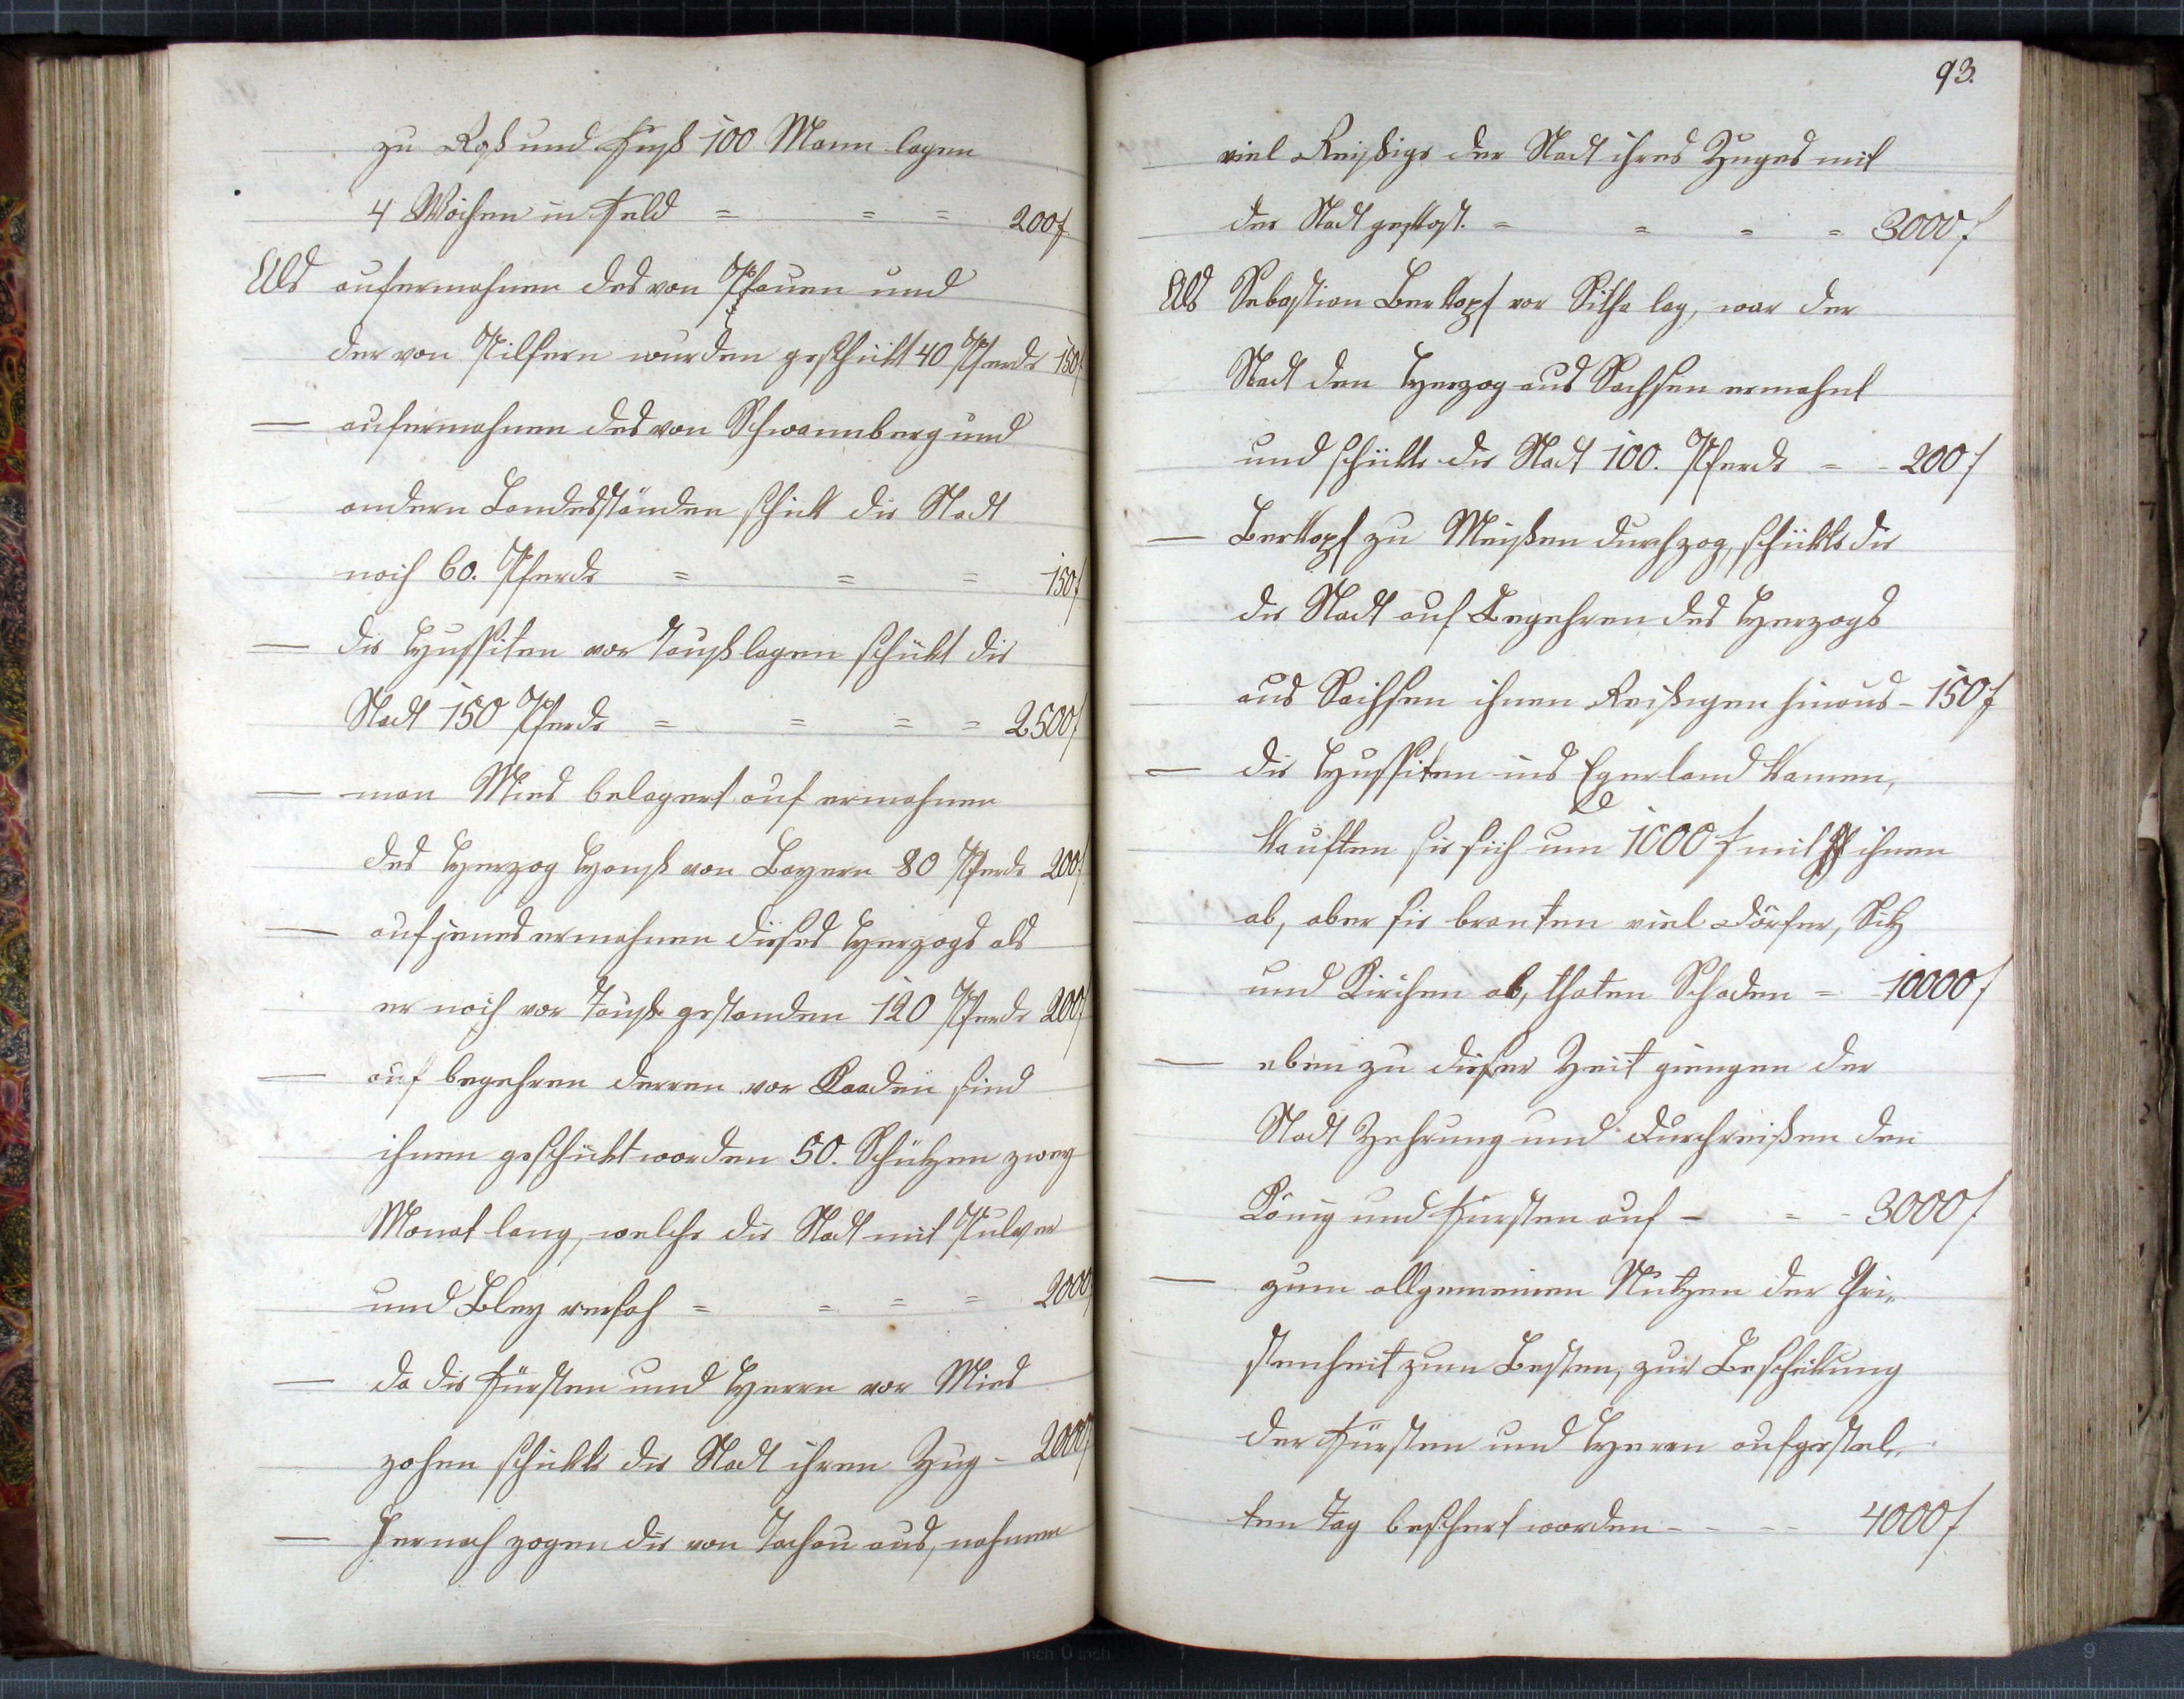 zu Roß und Fuß 100 Mann lagen
4 Wochen in Feld = = = 200f
Als aufermahnen des von Plauen und
der von Pilsern wurden geschükt 40 Pferde 150f
— aufermahnen des von Schwannberg und
andern Landesständen schikt die Stadt
noch 60. Pferde = = = 150f
— die Hussiten vor Tauß lagen schükt die
Stadt 150 Pferde = = = = 2500f
— man Mies belagert auf ermahnen
des Herzog Hanß von Bayern 80 Pferde 200f
— auf jenes ermahnen dieses Herzogs als
er noch vor Tauß gestanden 120 Pferde 200f
— auf begehren derren vor Kaaden sind
ihnen geschükt worden 50. Schützen zwey
Monat lang, welche die Stadt mit Pulver
und Bley versah = = = = 2000f
— da die Fürsten und Herrn vor Mies
zohen schükte die Stadt ihren Zug – 2000f
— Hernach zogen die von Tachau aus, nahmen
93.
viel Reißige der Stadt ihres Zuges mit
der Stadt gekost. = = = = 3000f
Als Sebastian Berkopf vor Sitha lag, war der
Stadt den Herzog aus Sachsen ermahnt
und schükte die Stadt 100. Pferde = - 200f
— Berkopf zu Meißen durchzog, schükte die
die Stadt auf Begehren des Herzogs
aus Sachsen ihnen Reißigen hinaus - 150f
— die Hussiten ins Egerland kamen,
kauften sie sich um 1000f mit ihnen
ab, aber sie branten viel Dörfer, Sitz
und Kirchen ab, thaten Schaden = - 10000f
— eben zu dieser Zeit giengen der
Stadt Zehrung und Durchreißen den
König und Fürsten auf – = - 3000f
— zum allgemeinen Nutzen der Chri„
stenheit zum Besten, zur Beschükung
der Fürsten und Herrn aufgestel„
ten Tag beschert worden - - - - 4000f